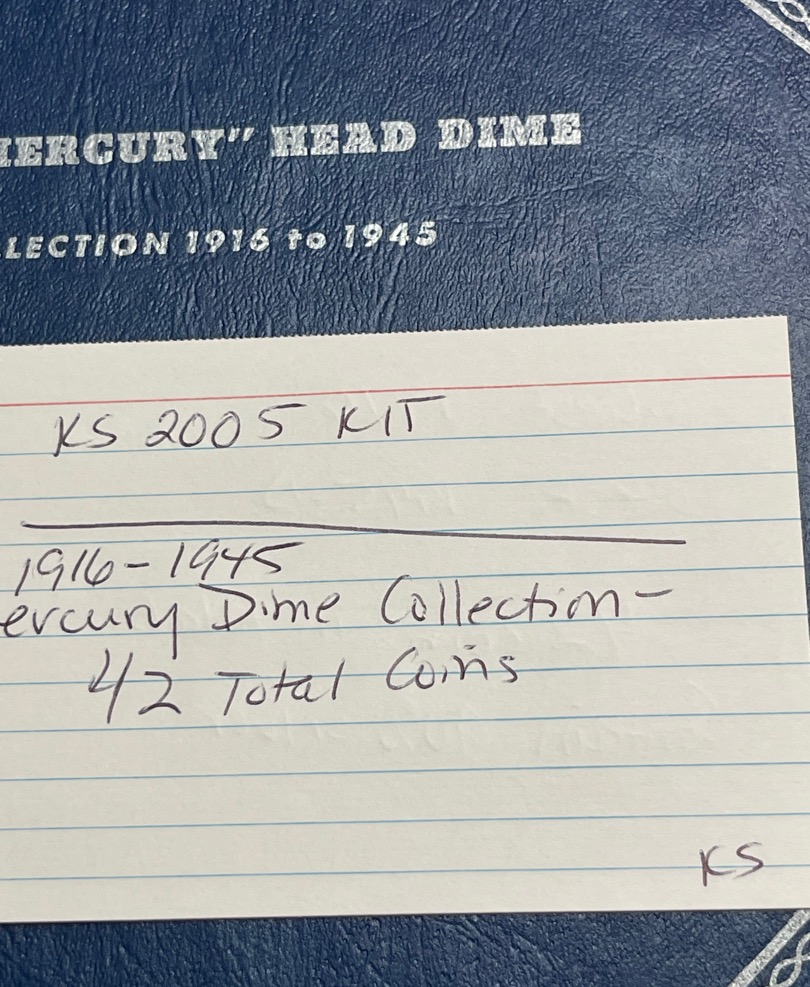 IERCURY" HEAD DIME
LLECTION 1916 to 1945
KS 2005 KIT
1916-1945
ercury Dime Collection-
42 Total Coins
KS